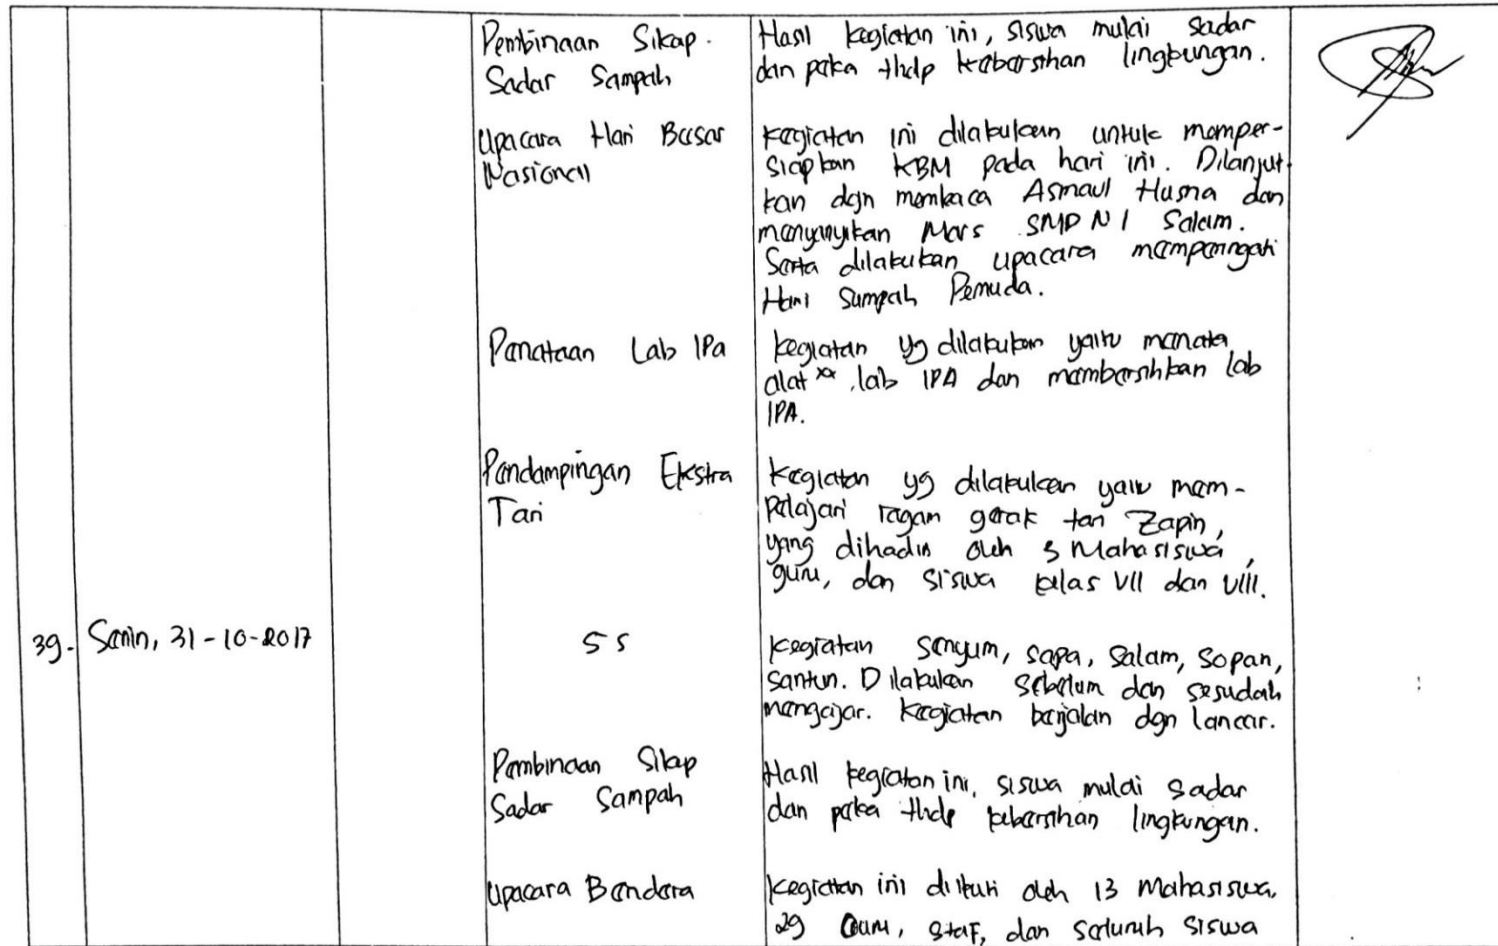 Pembinaan Sikap.
Sadar Sampah
Hasil kegiatan ini, siswa mulai sadar
dan peka thdp kebersihan lingkungan.
Upacara Hari Besar
Nasional
kegiatan ini dilakukan untuk memper-
siapkan KBM pada hari ini. Dilanjut-
kan dgn membaca Asmaul Husna dan
menyanyikan Mars SMP N 1 Salam.
Serta dilakukan upacara memperingati
Hari Sumpah Pemuda.
Penataan Lab IPa
kegiatan yg dilakukan yaitu menata
alat xx lab IPA dan membersihkan lab
IPA.
Pendampingan Ekstra
Tari
kegiatan yg dilakukan yaitu mem-
pelajari ragam gerak tari Zapin,
yang dihadiri oleh 3 Mahasiswa,
guru, dan siswa kelas VII dan VIII.
39. Senin, 31-10-2017
5 S
kegiatan senyum, sapa, salam, sopan,
santun. Dilakukan sebelum dan sesudah
mengajar. kegiatan berjalan dgn lancar.
Pembinaan Sikap
Sadar Sampah
Hasil kegiatan ini, siswa mulai sadar
dan peka thdp kebersihan lingkungan.
Upacara Bendera
kegiatan ini diikuti oleh 13 Mahasiswa,
29 Guru, staf, dan seluruh siswa